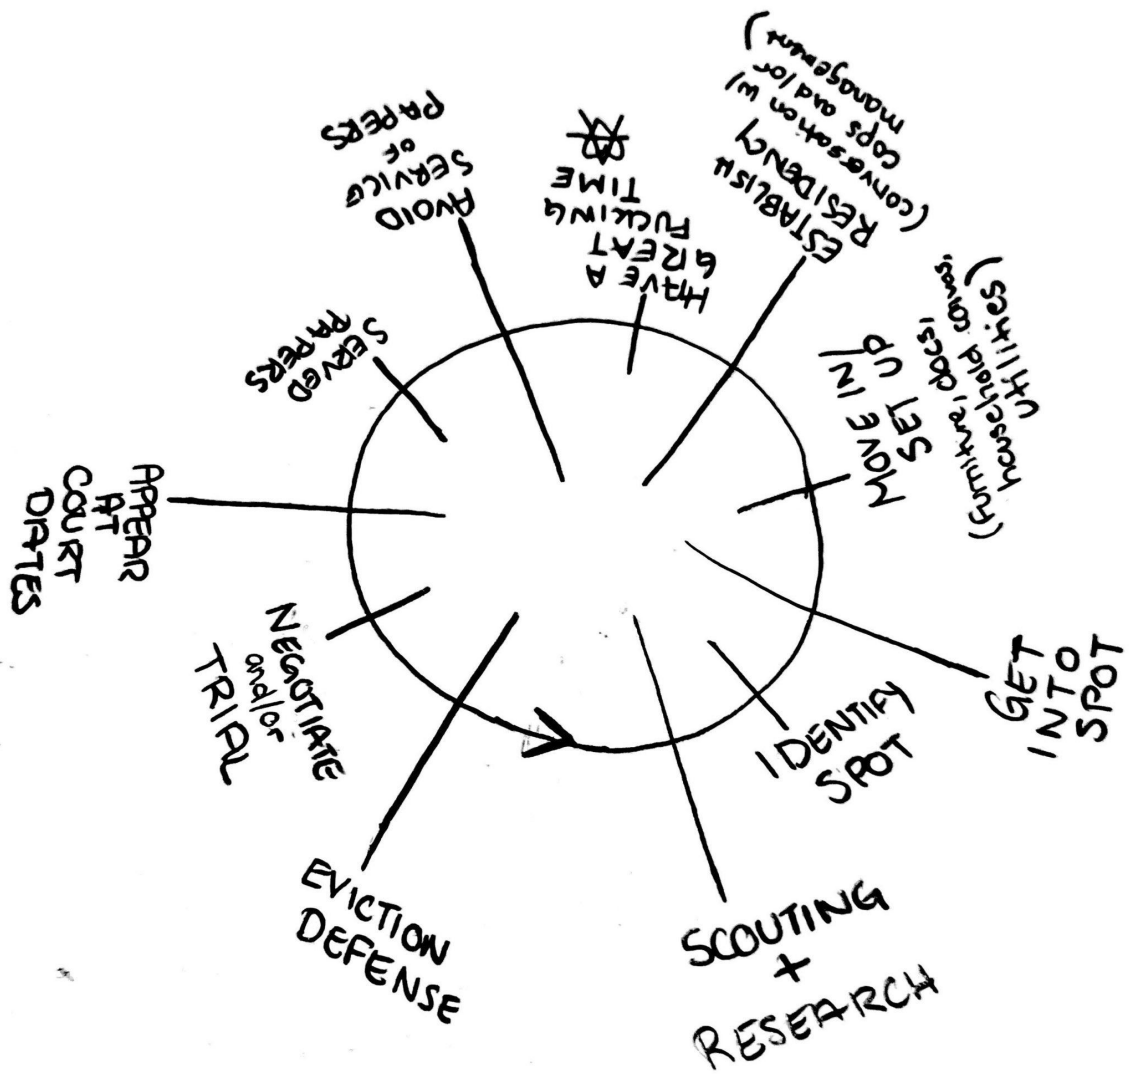 SCOUTING
+
RESEARCH
IDENTIFY
SPOT
GET
INTO
SPOT
MOVE IN/
SET UP
(furniture, docs,
household convos,
utilities)
ESTABLISH
RESIDENCY
(conversation w/
cops and/or
management)
HAVE A
GREAT
FUCKING
TIME
AVOID
SERVICE
OF
PAPERS
SERVED
PAPERS
APPEAR
AT
COURT
DATES
NEGOTIATE
and/or
TRIAL
EVICTION
DEFENSE